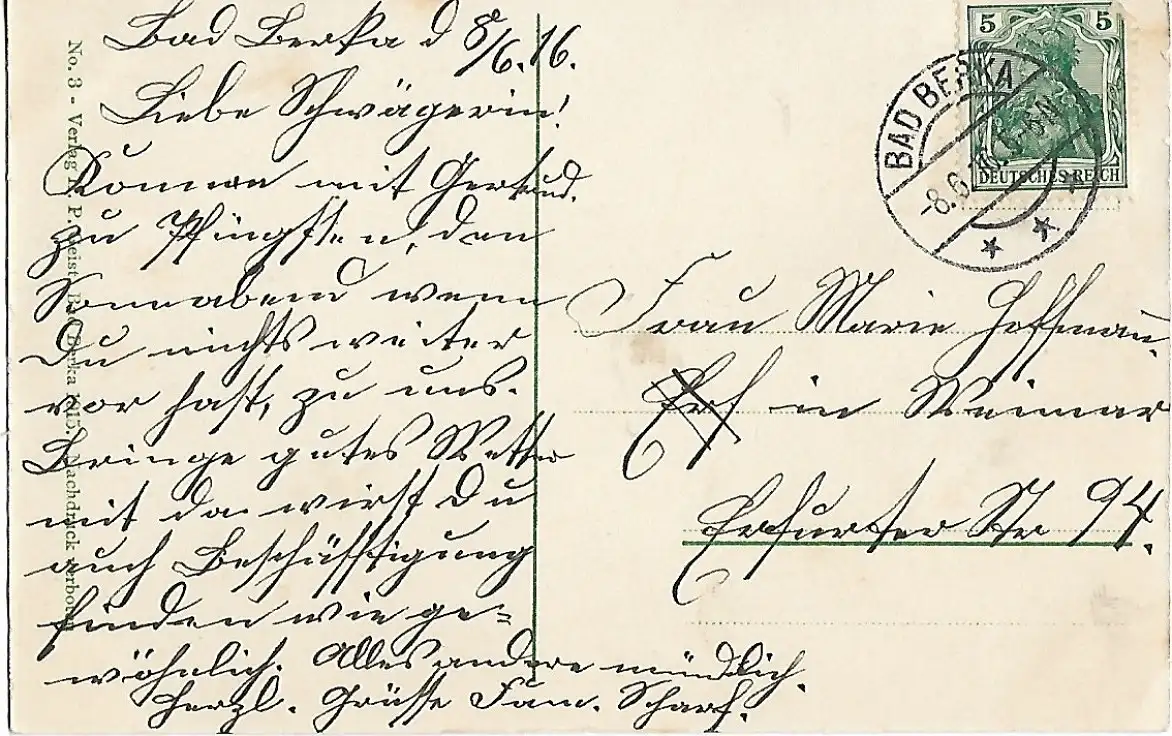 Bad Berka d 8/6.16.
Liebe Schwägerin!
Komme mit Gertrud.
zu Pfingsten, den
Sonnabend wenn
Du nichts weiter
vor hast, zu uns.
Bringe gutes Wetter
mit da wirst Du
auch Beschäfftigung
finden wie ge-
wöhnlich. Alles andere mündlich.
Herzl. Grüsse Fam. Scharf.
No. 3 - Verlag P. Geist, Bad Berka 1915. Nachdruck verboten
5 5
DEUTSCHES REICH
BAD BERKA
-8.6.16
Frau Marie Hoffmann.
Erf in Weimar
Erfurter Str 94.